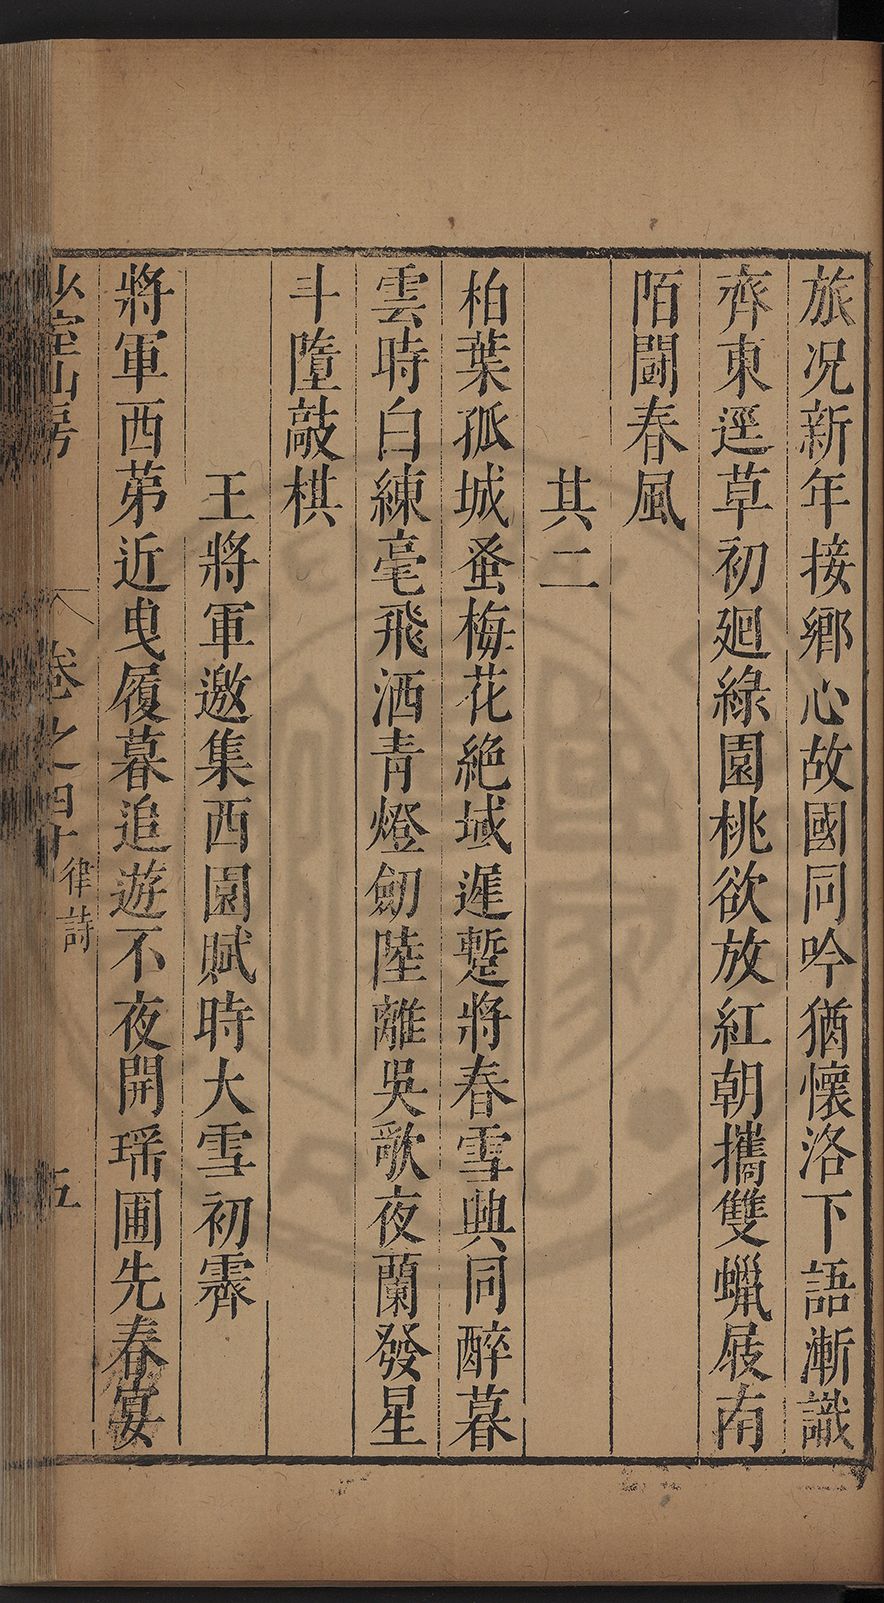 旅况新年接鄉心故國同吟猶懷洛下語漸識
齊東逕草初廻綠園桃欲放紅朝攜雙蠟屐南
陌鬪春風
其二
柏葉孤城蚤梅花絶域遲蹔將春雪興同醉暮
雲時白練毫飛洒青燈劒陸離吳歌夜闌發星
斗墮敲棋
王將軍邀集西園賦時大雪初霽
將軍西苐近曳履暮追遊不夜開瑶圃先春宴
少室山房
卷之四十
律詩
五